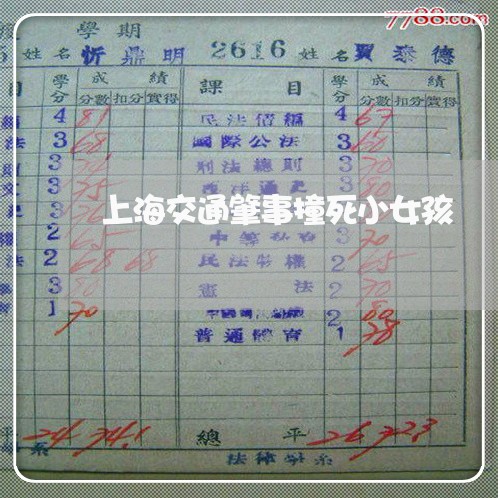 7788.com
學期
姓名 忻鼎明 2616 姓名 賈泰德
目 學分 成績 課目 學分 成績
分數 扣分 實得 分數 扣分 實得
4 81 民法債編 4 67
法 3 68 國際公法 3 60
3 刑法總則 3 70
3 75 西洋通史 3 80
上海交通肇事撞死小女孩
2 65 3 70
法 2 68 68 民法物權 2 65
3 80 憲法 2 70
1 70 2 80
普通體育 1 78
平 24 74.1 總平 26 72.3
系 法律學系